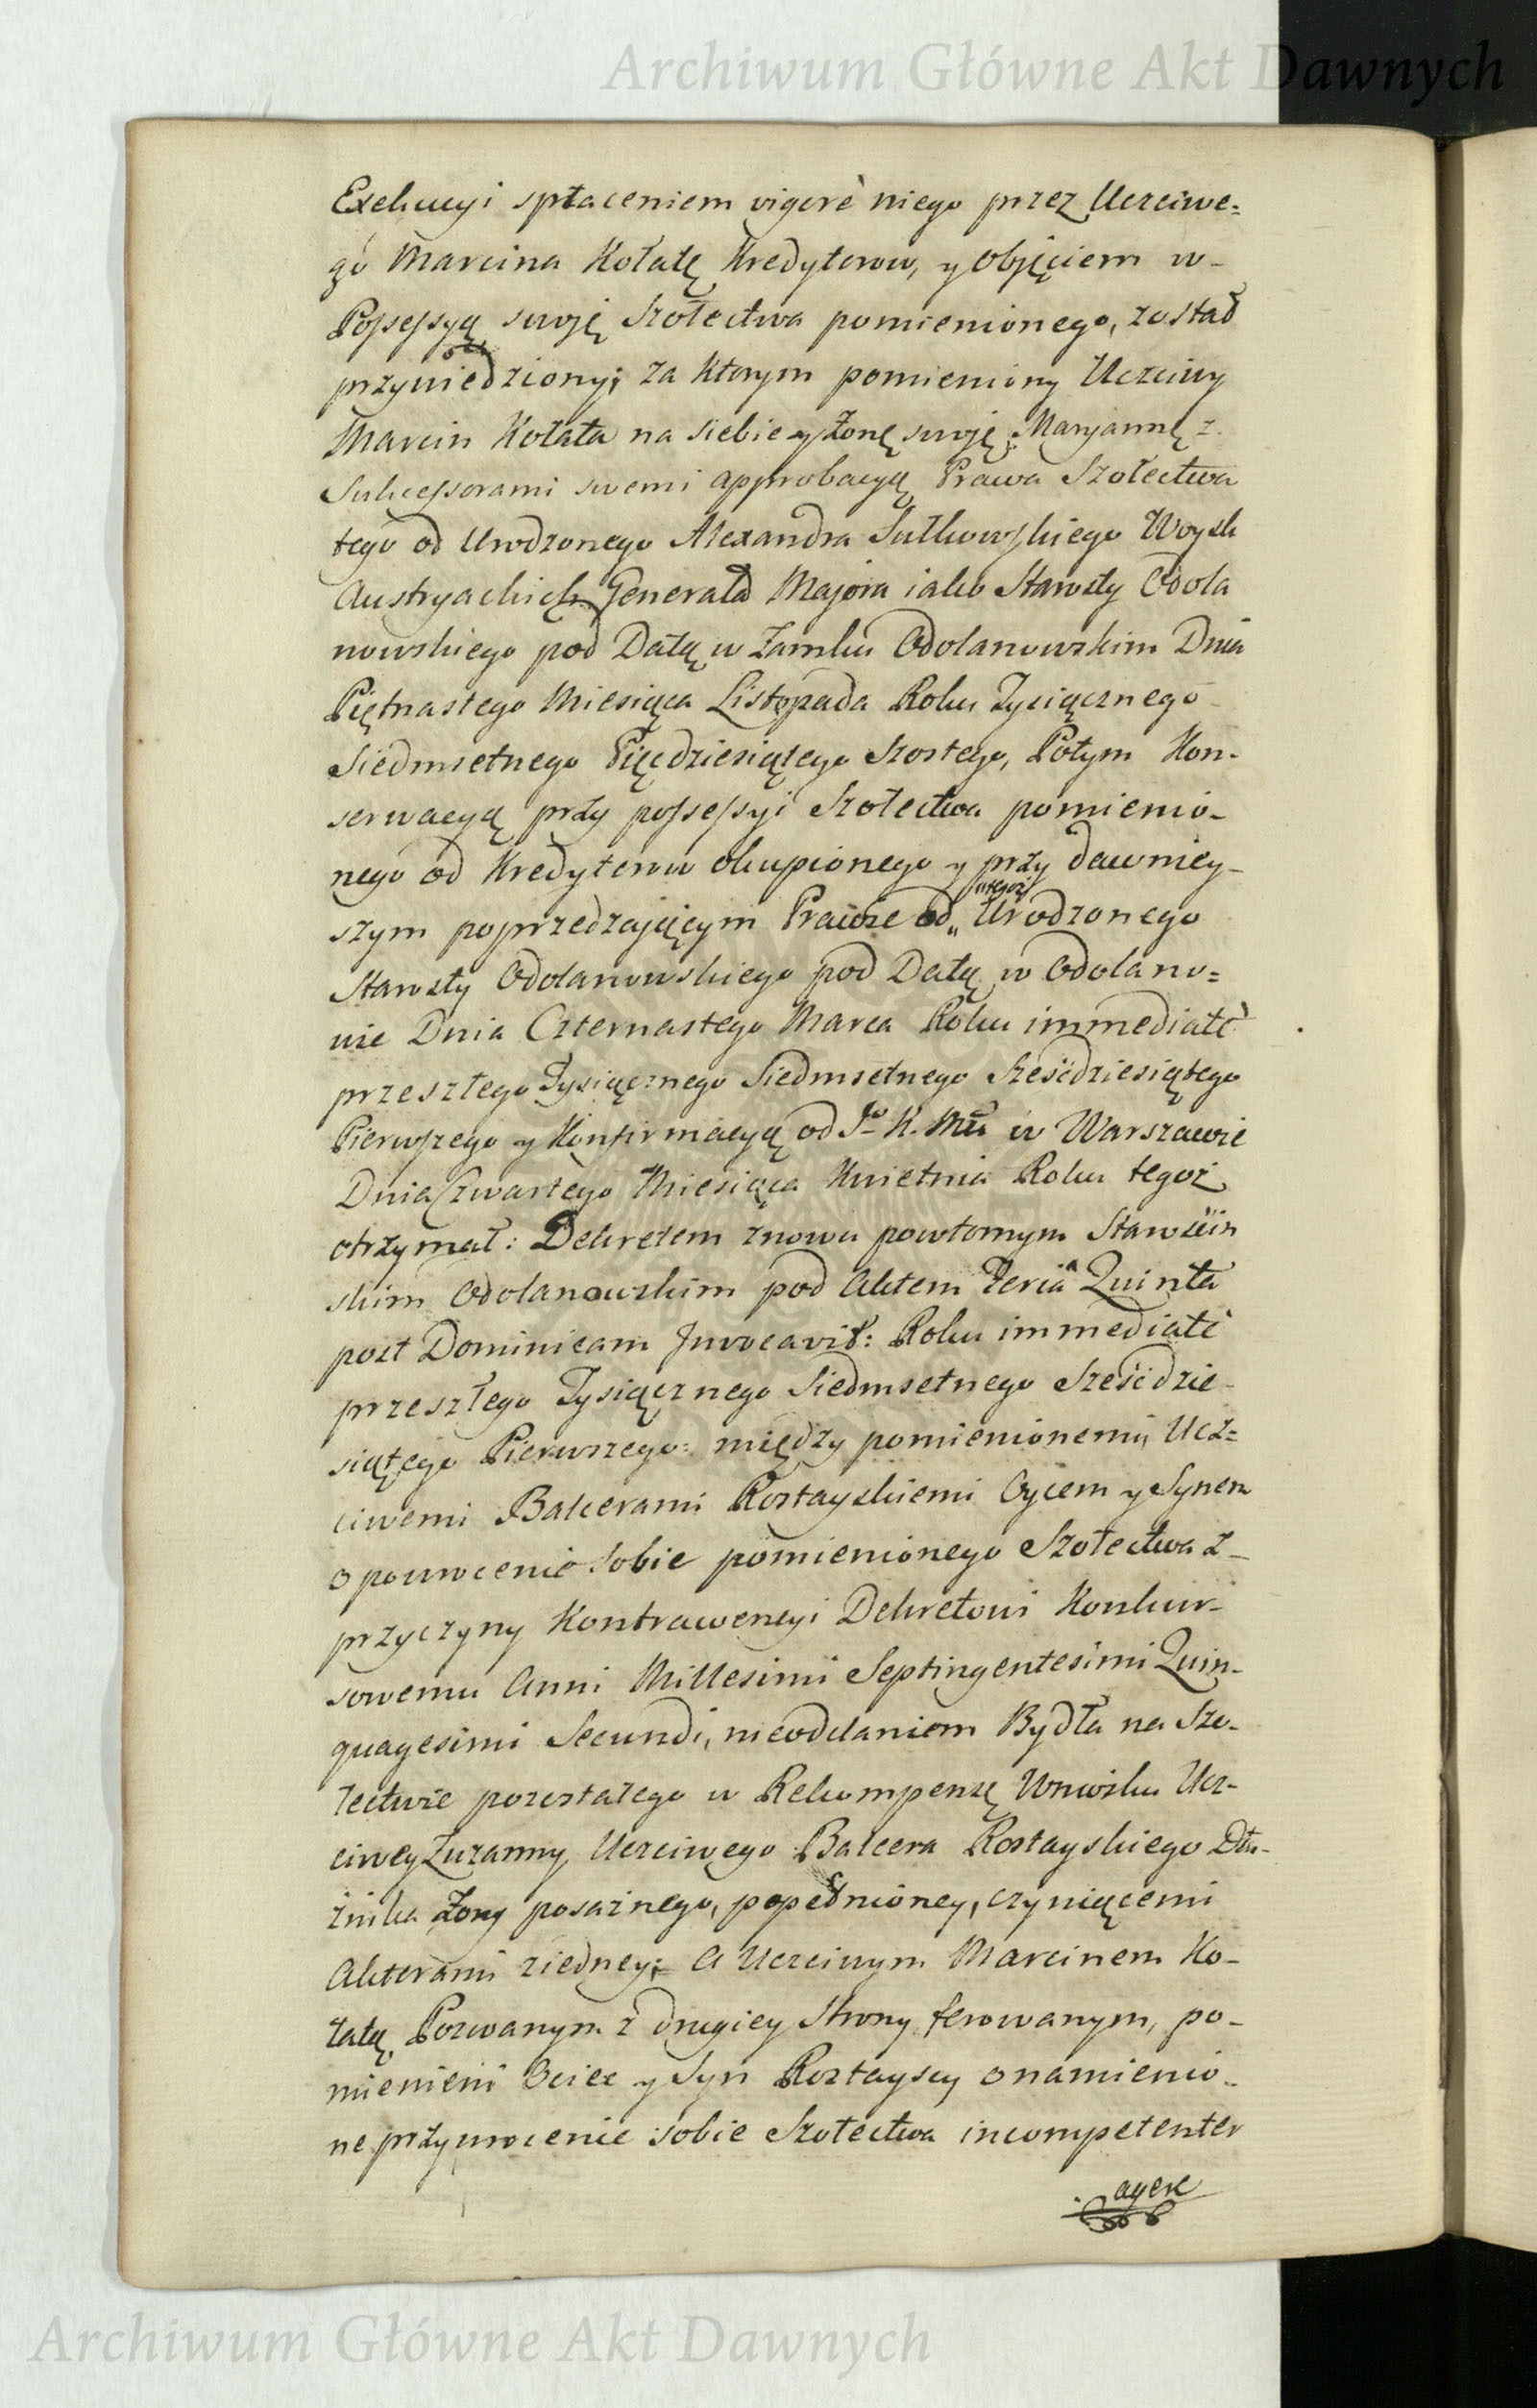 Archiwum Główne Akt Dawnych
Exekucyi spłaceniem vigorè niego przez Uczciwe=
go Marcina Kołatę Kredytorow, y objęciem w-
Possessyą swoję Szołectwa pomienionego, został
przywiedziony; za ktorym pomieniony Uczciwy
Marcin Kołata na siebie y Żonę swoję Maryannę z
Sukcessorami swemi approbacyą Prawa Szołectwa
tego od Urodzonego Alexandra Sułkowskiego Woysk
Austryackich Generała Majora iako Starosty Odola
nowskiego pod Datą w Zamku Odolanowskim Dnia
Piętnastego Miesiąca Listopada Roku Tysiącznego
Siedmsetnego Pięcdziesiątego Szostego, Potym Kon-
serwacyą przy possessyi Szołectwa pomienio-
nego od Kredytorow okupionego y przy dawniey-
szym poprzedzaiącym Prawie od „tegoż” Urodzonego
Starosty Odolanowskiego pod Datą w Odolano=
wie Dnia Czternastego Marca Roku immediatè
przeszłego Tysiącznego Siedmsetnego Sześćdziesiątego
Pierwszego y Konfirmacyą od Jo K. Mci w Warszawie
Dnia Czwartego Miesiąca Kwietnia Roku tegoż
otrzymał: Dekretem znowu powtornym Starościn
skim Odolanowskim pod Aktem Feriâ Quinta
post Dominicam Invocavit: Roku immediatè
przeszłego Tysiącznego Siedmsetnego Sześćdzie-
siątego Pierwszego: między pomienionemi Ucz=
ciwemi Balcerami Roztayskiemi Oycem y Synem
o powrocenie sobie pomienionego Szołectwa z-
przyczyny Kontrawencyi Dekretowi Konkur-
sowemu Anni Millesimi Septingentesimi Quin-
quagesimi Secundi, nieoddaniem Bydła na Szo-
łectwie pozostałego w Rekompensę Wniosku Ucz-
ciwey Zuzanny Uczciwego Balcera Roztayskiego Dłu-
żnika Żony posażnego, popełnioney, czyniącemi
Aktorami z iedney; A Uczciwym Marcinem Ko-
łatą Pozwanym z drugiey Strony ferowanym, po-
mienieni Ociec y Syn Roztayscy o namienio-
ne przywrocenie sobie Szołectwa incompetenter
agere
Archiwum Główne Akt Dawnych